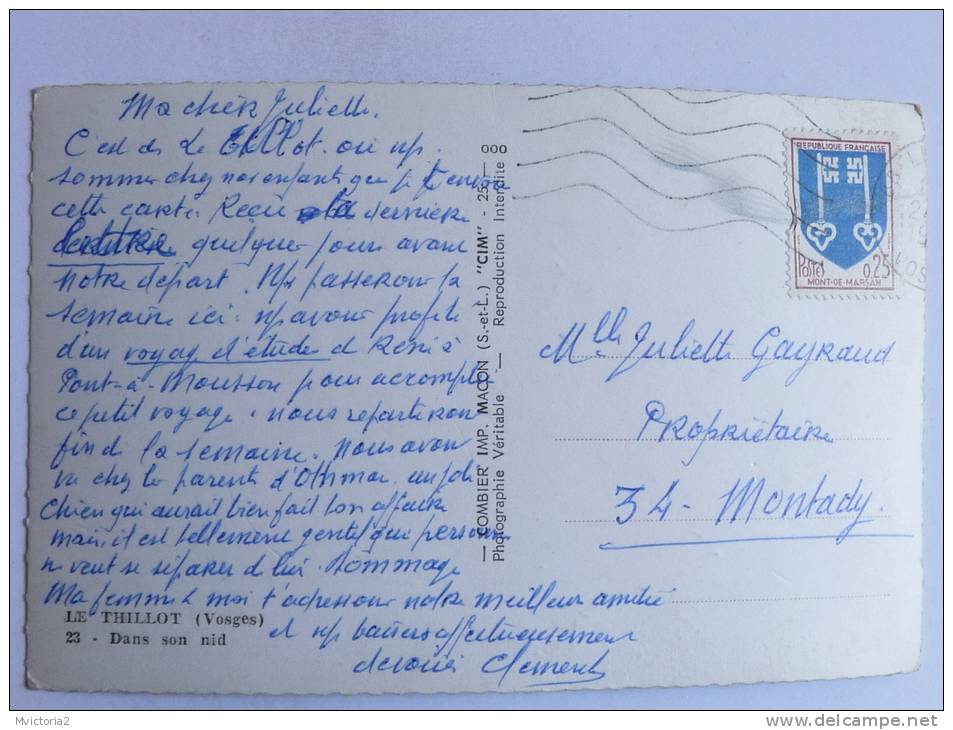 Ma chère Juliette.
C'est de Le Thillot. où np.
sommes chez nos enfants que je t'envoie
cette carte. Reçu la dernière
quelques jours avant
notre départ. Np passerons la
semaine ici. np avons profité
d'un voyage d'études de René à
Pont-à-Mousson pour accomplir
ce petit voyage. nous repartirons
fin de la semaine. Nous avons
vu chez les parents d'Othmar un joli
chien qui aurait bien fait ton affaire
mais il est tellement gentil que personne
ne veut se séparer de lui. Dommage
Ma femme & moi t'adressons notre meilleur amitié
et np baisers affectueusement
dévoués Clément
LE THILLOT (Vosges)
23 - Dans son nid
COMBIER IMP. MACON (S.-et-L.) "CIM" - 25
Photographie Véritable — Reproduction Interdite
000
REPUBLIQUE FRANÇAISE
POSTES 0,25
MONT-DE-MARSAN
Mlle Juliette Gayraud
Propriétaire
34 - Montady.
Mvictoria2
www.delcampe.net